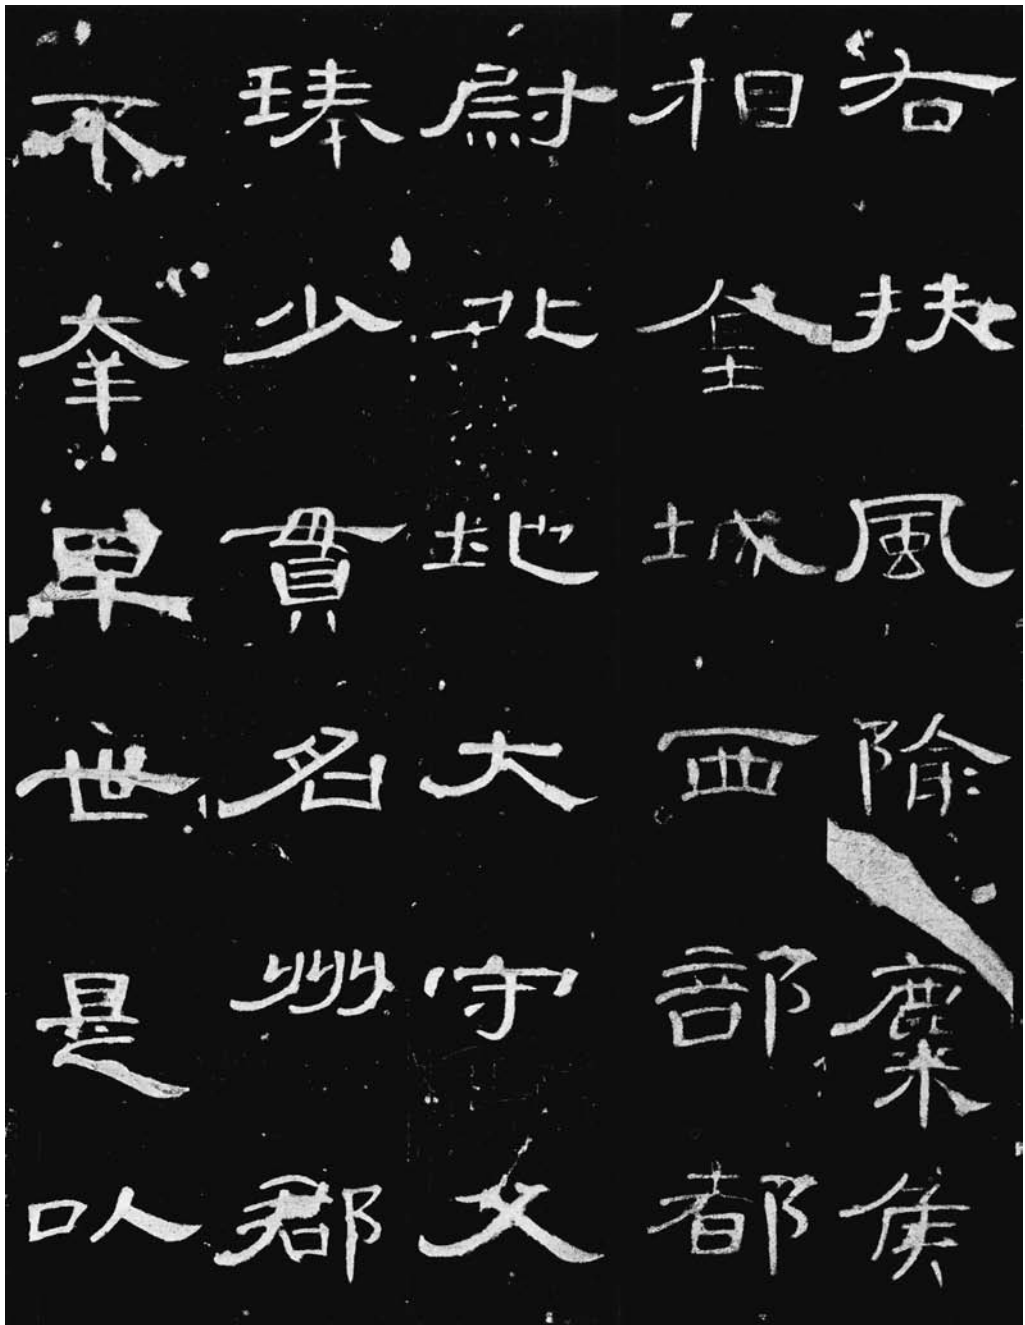 右扶風隃麋侯
相金城西部都
尉北地大守父
琫少貫名州郡
不幸早世是以